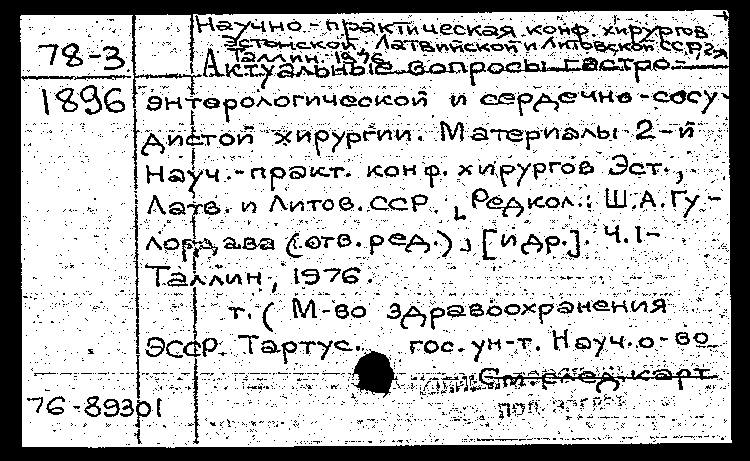 Научно-практическая конф. хирургов
Эстонской, Латвийской и Литовской ССР, 2я
Таллин. 1976
78-3 Актуальные вопросы гастро-
1896 энтерологической и сердечно-сосу-
дистой хирургии. Материалы 2-й
Науч.-практ. конф. хирургов Эст.,
Латв. и Литов. ССР. Редкол.: Ш.А. Гу-
(отв. ред.), [и др.]. Ч.1-
Таллин, 1976.
т. (М-во здравоохранения
ЭССР. Тартус. гос. ун-т. Науч. о-во
См. след. карт
76-89301